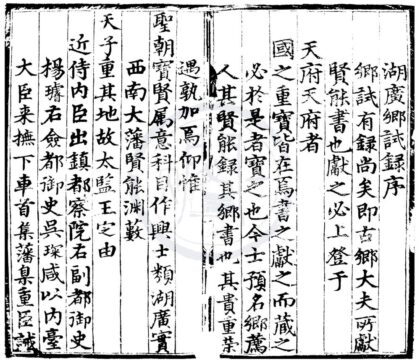 湖廣鄉試錄序
鄉試有錄尚矣即古鄉大夫所獻
賢能書也獻之必上登于
天府天府者
國之重寶皆在焉書之獻之而藏之
必於是者寶之也今士預名鄉薦
人其賢能錄其鄉書也其貴重榮
遇孰加焉仰惟
聖朝寶賢屬意科目作興士類湖廣實
西南大藩賢能淵藪
天子重其地故太監王定由
近侍内臣出鎮都察院右副都御史
楊璿右僉都御史吳琛咸以内臺
大臣来撫下車首集藩臬重臣誡